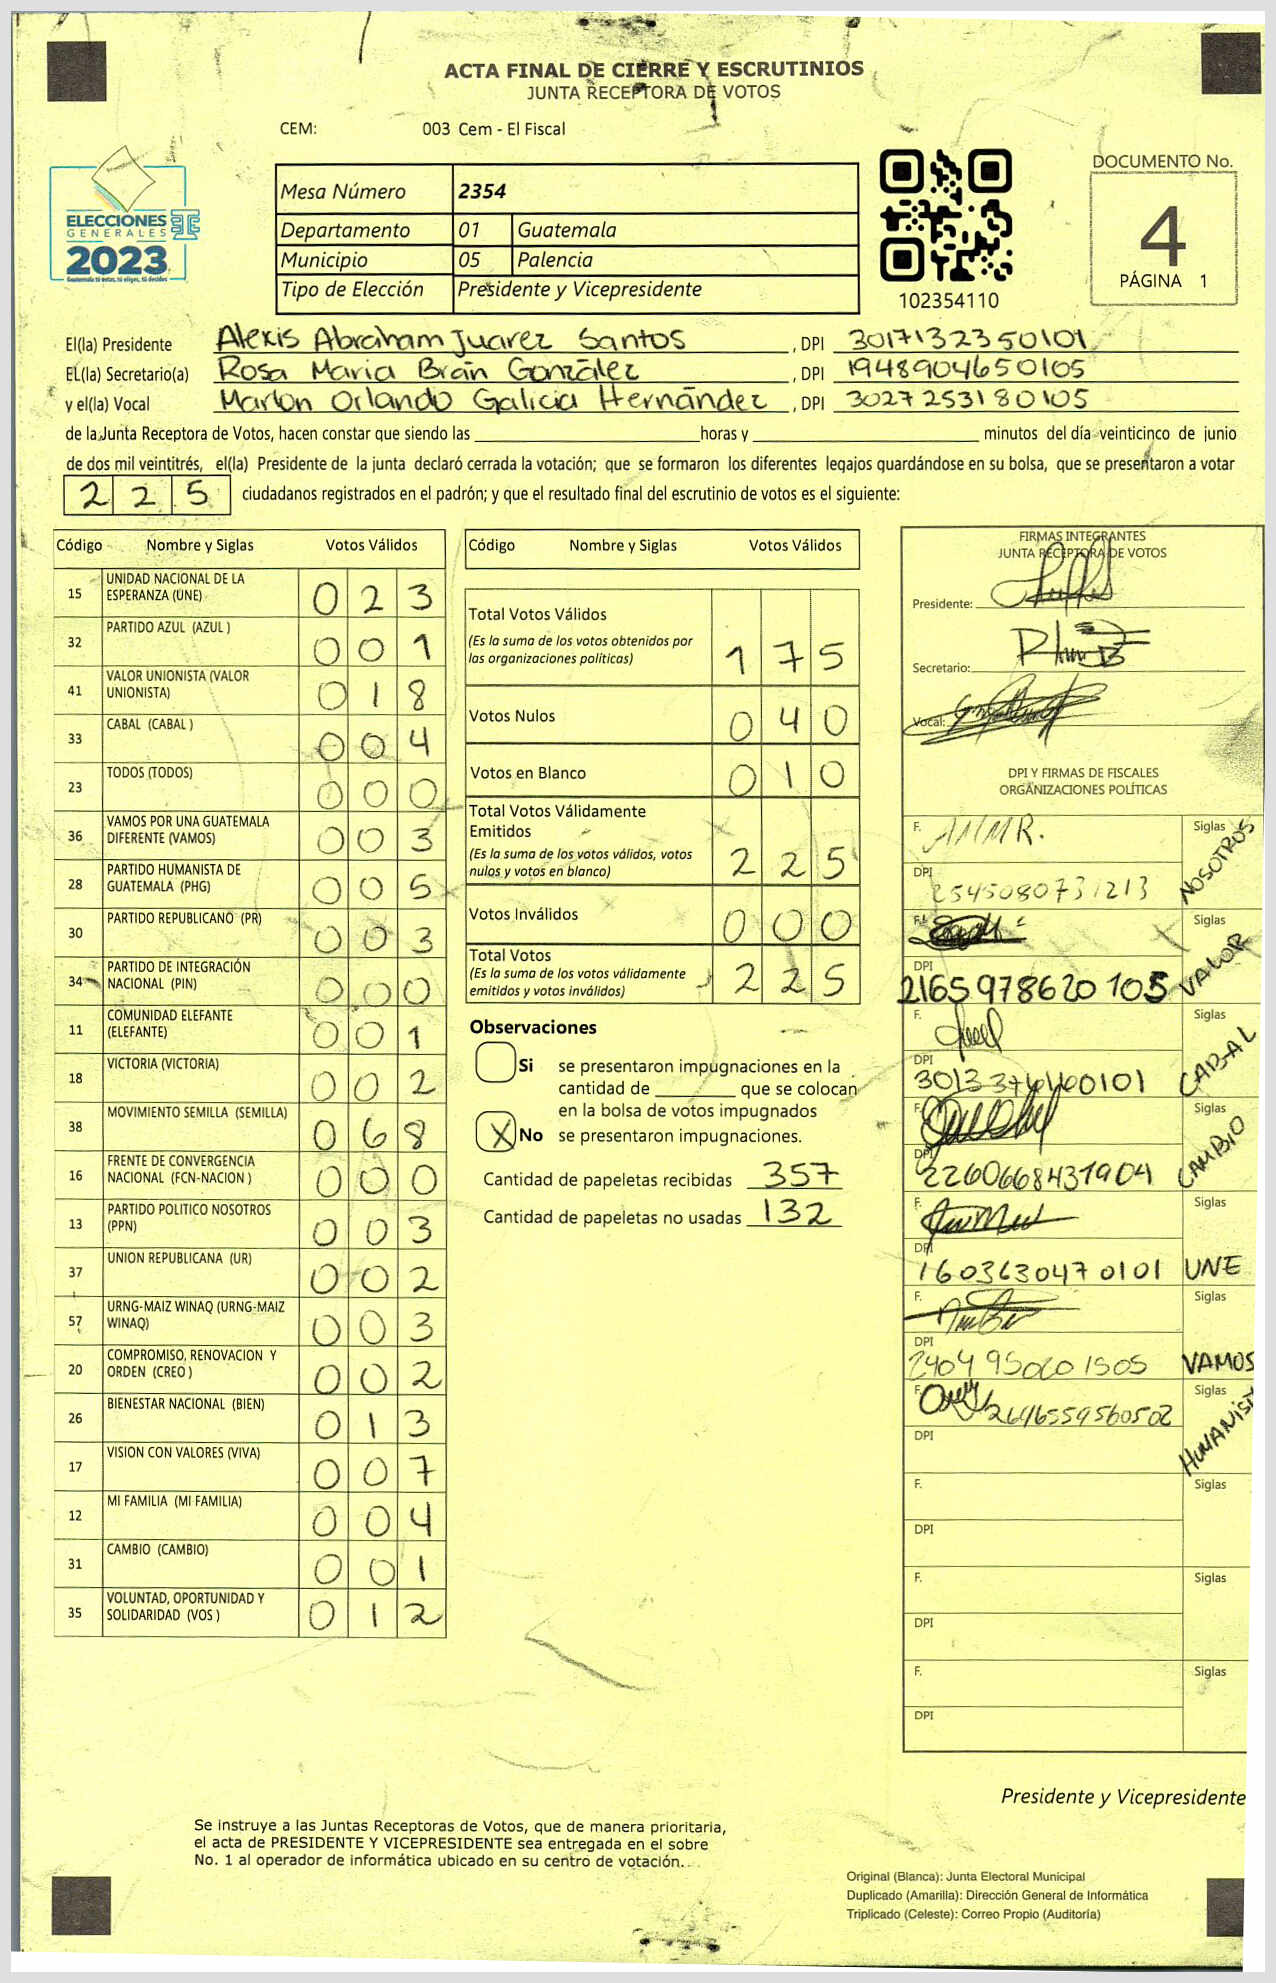 ACTA FINAL DE CIERRE Y ESCRUTINIOS
JUNTA RECEPTORA DE VOTOS
CEM: 003 Cem - El Fiscal
ELECCIONES
GENERALES
2023
Mesa Número 2354
Departamento 01 Guatemala
Municipio 05 Palencia
Tipo de Elección Presidente y Vicepresidente
102354110
DOCUMENTO No.
4
PÁGINA 1
El(la) Presidente Alexis Abraham Juarez Santos , DPI 3017132350101
EL(la) Secretario(a) Rosa Maria Brán González , DPI 1948904650105
y el(la) Vocal Marlon Orlando Galicia Hernández , DPI 3027253180105
de la Junta Receptora de Votos, hacen constar que siendo las horas y minutos del día veinticinco de junio
de dos mil veintitrés, el(la) Presidente de la junta declaró cerrada la votación; que se formaron los diferentes legajos guardándose en su bolsa, que se presentaron a votar
225 ciudadanos registrados en el padrón; y que el resultado final del escrutinio de votos es el siguiente:
Código Nombre y Siglas Votos Válidos
15 UNIDAD NACIONAL DE LA ESPERANZA (UNE) 023
32 PARTIDO AZUL (AZUL ) 001
41 VALOR UNIONISTA (VALOR UNIONISTA) 018
33 CABAL (CABAL ) 004
23 TODOS (TODOS) 000
36 VAMOS POR UNA GUATEMALA DIFERENTE (VAMOS) 003
28 PARTIDO HUMANISTA DE GUATEMALA (PHG) 005
30 PARTIDO REPUBLICANO (PR) 003
34 PARTIDO DE INTEGRACIÓN NACIONAL (PIN) 000
11 COMUNIDAD ELEFANTE (ELEFANTE) 001
18 VICTORIA (VICTORIA) 002
38 MOVIMIENTO SEMILLA (SEMILLA) 068
16 FRENTE DE CONVERGENCIA NACIONAL (FCN-NACION ) 000
13 PARTIDO POLITICO NOSOTROS (PPN) 003
37 UNION REPUBLICANA (UR) 002
57 URNG-MAIZ WINAQ (URNG-MAIZ WINAQ) 003
20 COMPROMISO, RENOVACION Y ORDEN (CREO ) 002
26 BIENESTAR NACIONAL (BIEN) 013
17 VISION CON VALORES (VIVA) 007
12 MI FAMILIA (MI FAMILIA) 004
31 CAMBIO (CAMBIO) 001
35 VOLUNTAD, OPORTUNIDAD Y SOLIDARIDAD (VOS ) 012
Código Nombre y Siglas Votos Válidos
Total Votos Válidos
(Es la suma de los votos obtenidos por
las organizaciones políticas) 175
Votos Nulos 040
Votos en Blanco 010
Total Votos Válidamente
Emitidos
(Es la suma de los votos válidos, votos
nulos y votos en blanco) 225
Votos Inválidos 000
Total Votos
(Es la suma de los votos válidamente
emitidos y votos inválidos) 225
Observaciones
Si se presentaron impugnaciones en la
cantidad de que se colocan
en la bolsa de votos impugnados
X No se presentaron impugnaciones.
Cantidad de papeletas recibidas 357
Cantidad de papeletas no usadas 132
FIRMAS INTEGRANTES
JUNTA RECEPTORA DE VOTOS
Presidente:
Secretario:
Vocal:
DPI Y FIRMAS DE FISCALES
ORGANIZACIONES POLÍTICAS
F. Siglas NOSOTROS
DPI 2545080731213
F. Siglas VALOR
DPI 2165978620105
F. Siglas CABAL
DPI
F. Siglas CAMBIO
DPI 2260668431904
F. Siglas UNE
DPI 1603630470101
F. Siglas VAMOS
DPI 2404950201505
F. Siglas
2646559560502
DPI
F. Siglas
DPI
F. Siglas
DPI
F. Siglas
DPI
Presidente y Vicepresidente
Se instruye a las Juntas Receptoras de Votos, que de manera prioritaria,
el acta de PRESIDENTE Y VICEPRESIDENTE sea entregada en el sobre
No. 1 al operador de informática ubicado en su centro de votación.
Original (Blanca): Junta Electoral Municipal
Duplicado (Amarilla): Dirección General de Informática
Triplicado (Celeste): Correo Propio (Auditoría)